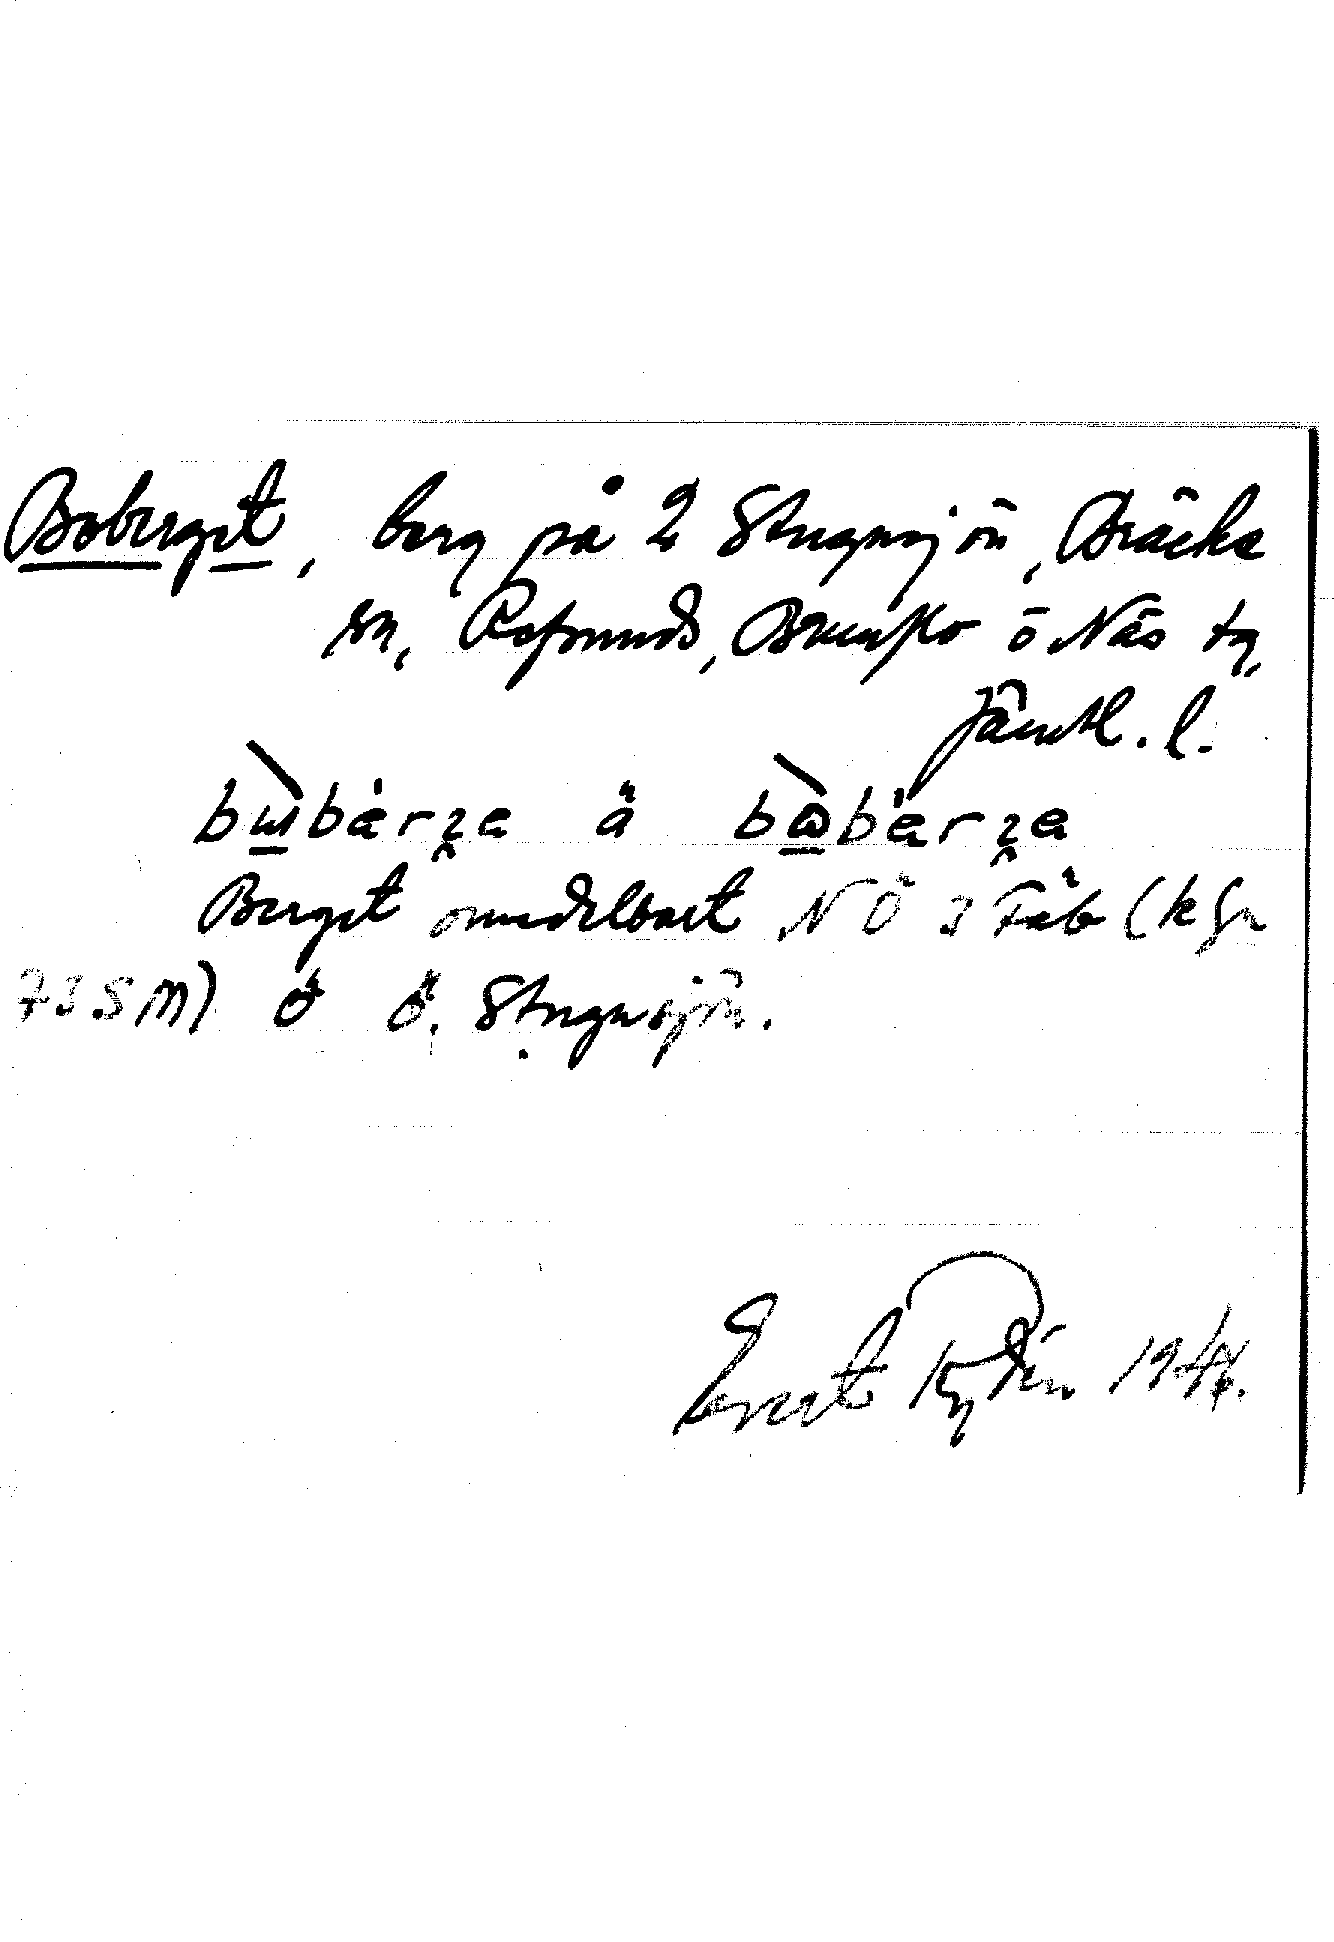 Boberget, berg på 2 Stugusjön, Bräcke
sn, Refsunds, Brunflo o Näs tg,
Jämtl. l.
bɯbȧrʒe ä bɷbȧrʒe
Berget omedelbart NÖ 3 Fäb (kfr
73 SM) Ö Ö. Stugusjön.
Evert Rydén 1944.